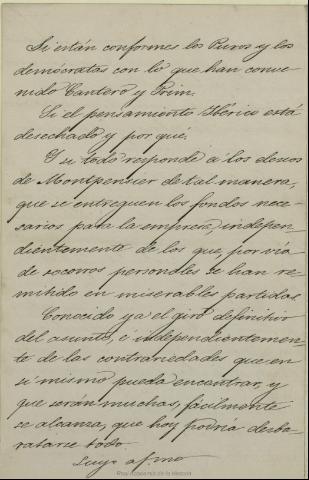 Si están conformes los Puros y los
demócratas con lo que han conve-
nido Cantero y Prim.
Si el pensamiento Ibérico está
desechado y por qué.
Y si todo responde á los deseos
de Montpensier de tal manera,
que se entreguen los fondos nece-
sarios para la empresa, indepen-
dientemente de los que, por vía
de socorros personales se han re-
mitido en miserables partidas.
Conocido ya el giro definitivo
del asunto, é independientemen-
te de las contrariedades que en
si mismo pueda encontrar, y
que serán muchas, fácilmente
se alcanza, que hoy podría desba-
ratarse todo
Suyo af.mo
Real Academia de la Historia